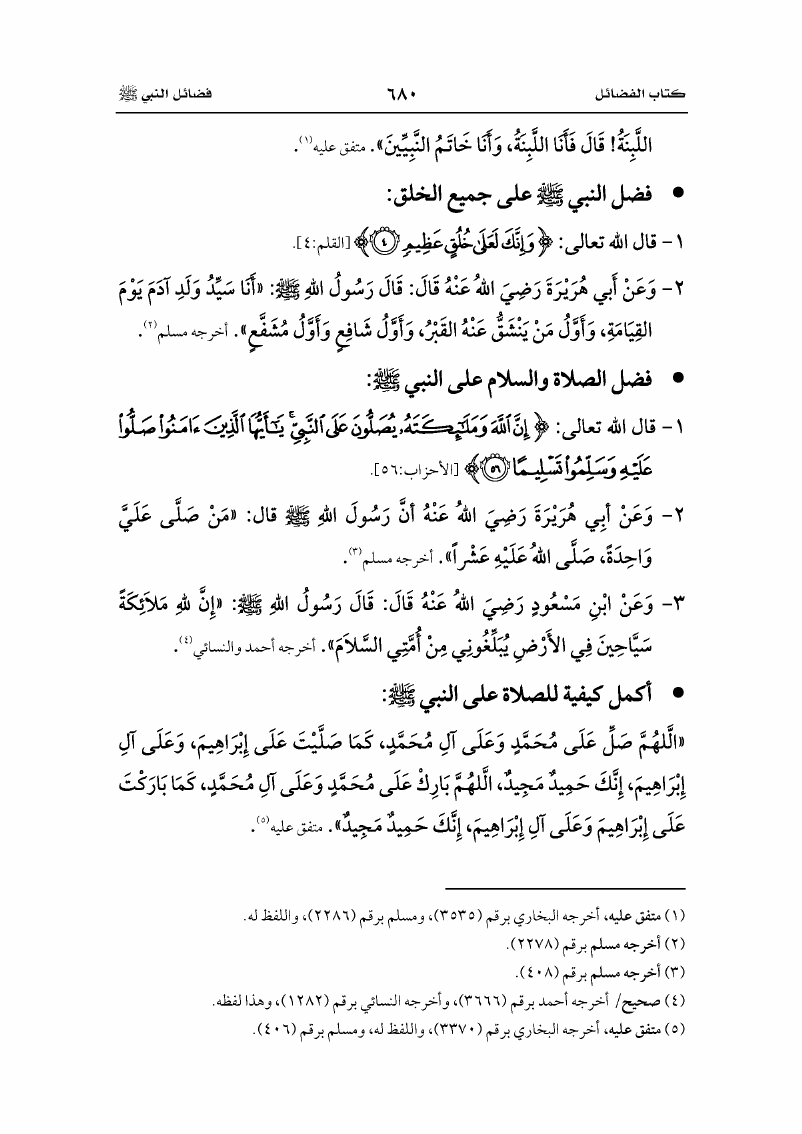 كتاب الفضائل ٦٨٠ فضائل النبي ﷺ
اللَّبِنَةُ! قَالَ فَأَنَا اللَّبِنَةُ، وَأَنَا خَاتَمُ النَّبِيِّينَ». متفق عليه(١).
• فضل النبي ﷺ على جميع الخلق:
١- قال الله تعالى: ﴿وَإِنَّكَ لَعَلَىٰ خُلُقٍ عَظِيمٍ ٤﴾ [القلم:٤].
٢- وَعَنْ أَبي هُرَيْرَةَ رَضِيَ اللهُ عَنْهُ قَالَ: قَالَ رَسُولُ اللهِ ﷺ: «أَنَا سَيِّدُ وَلَدِ آدَمَ يَوْمَ
القِيَامَةِ، وَأَوَّلُ مَنْ يَنْشَقُّ عَنْهُ القَبْرُ، وَأَوَّلُ شَافِعٍ وَأَوَّلُ مُشَفَّعٍ». أخرجه مسلم(٢).
• فضل الصلاة والسلام على النبي ﷺ:
١- قال الله تعالى: ﴿إِنَّ ٱللَّهَ وَمَلَـٰٓئِكَتَهُۥ يُصَلُّونَ عَلَى ٱلنَّبِيِّ ۚ يَـٰٓأَيُّهَا ٱلَّذِينَ ءَامَنُوا۟ صَلُّوا۟
عَلَيْهِ وَسَلِّمُوا۟ تَسْلِيمًا ٥٦﴾ [الأحزاب:٥٦].
٢- وَعَنْ أَبِي هُرَيْرَةَ رَضِيَ اللهُ عَنْهُ أَنَّ رَسُولَ اللهِ ﷺ قال: «مَنْ صَلَّى عَلَيَّ
وَاحِدَةً، صَلَّى اللهُ عَلَيْهِ عَشْراً». أخرجه مسلم(٣).
٣- وَعَنْ ابْنِ مَسْعُودٍ رَضِيَ اللهُ عَنْهُ قَالَ: قَالَ رَسُولُ اللهِ ﷺ: «إِنَّ للهِ مَلاَئِكَةً
سَيَّاحِينَ فِي الأَرْضِ يُبَلِّغُونِي مِنْ أُمَّتِي السَّلاَمَ». أخرجه أحمد والنسائي(٤).
• أكمل كيفية للصلاة على النبي ﷺ:
«الَّلهُمَّ صَلِّ عَلَى مُحَمَّدٍ وَعَلَى آلِ مُحَمَّدٍ، كَمَا صَلَّيْتَ عَلَى إِبْرَاهِيمَ، وَعَلَى آلِ
إِبْرَاهِيمَ، إِنَّكَ حَمِيدٌ مَجِيدٌ، الَّلهُمَّ بَارِكْ عَلَى مُحَمَّدٍ وَعَلَى آلِ مُحَمَّدٍ، كَمَا بَارَكْتَ
عَلَى إِبْرَاهِيمَ وَعَلَى آلِ إِبْرَاهِيمَ، إِنَّكَ حَمِيدٌ مَجِيدٌ». متفق عليه(٥).
(١) متفق عليه، أخرجه البخاري برقم (٣٥٣٥)، ومسلم برقم (٢٢٨٦)، واللفظ له.
(٢) أخرجه مسلم برقم (٢٢٧٨).
(٣) أخرجه مسلم برقم (٤٠٨).
(٤) صحيح/ أخرجه أحمد برقم (٣٦٦٦)، وأخرجه النسائي برقم (١٢٨٢)، وهذا لفظه.
(٥) متفق عليه، أخرجه البخاري برقم (٣٣٧٠)، واللفظ له، ومسلم برقم (٤٠٦).